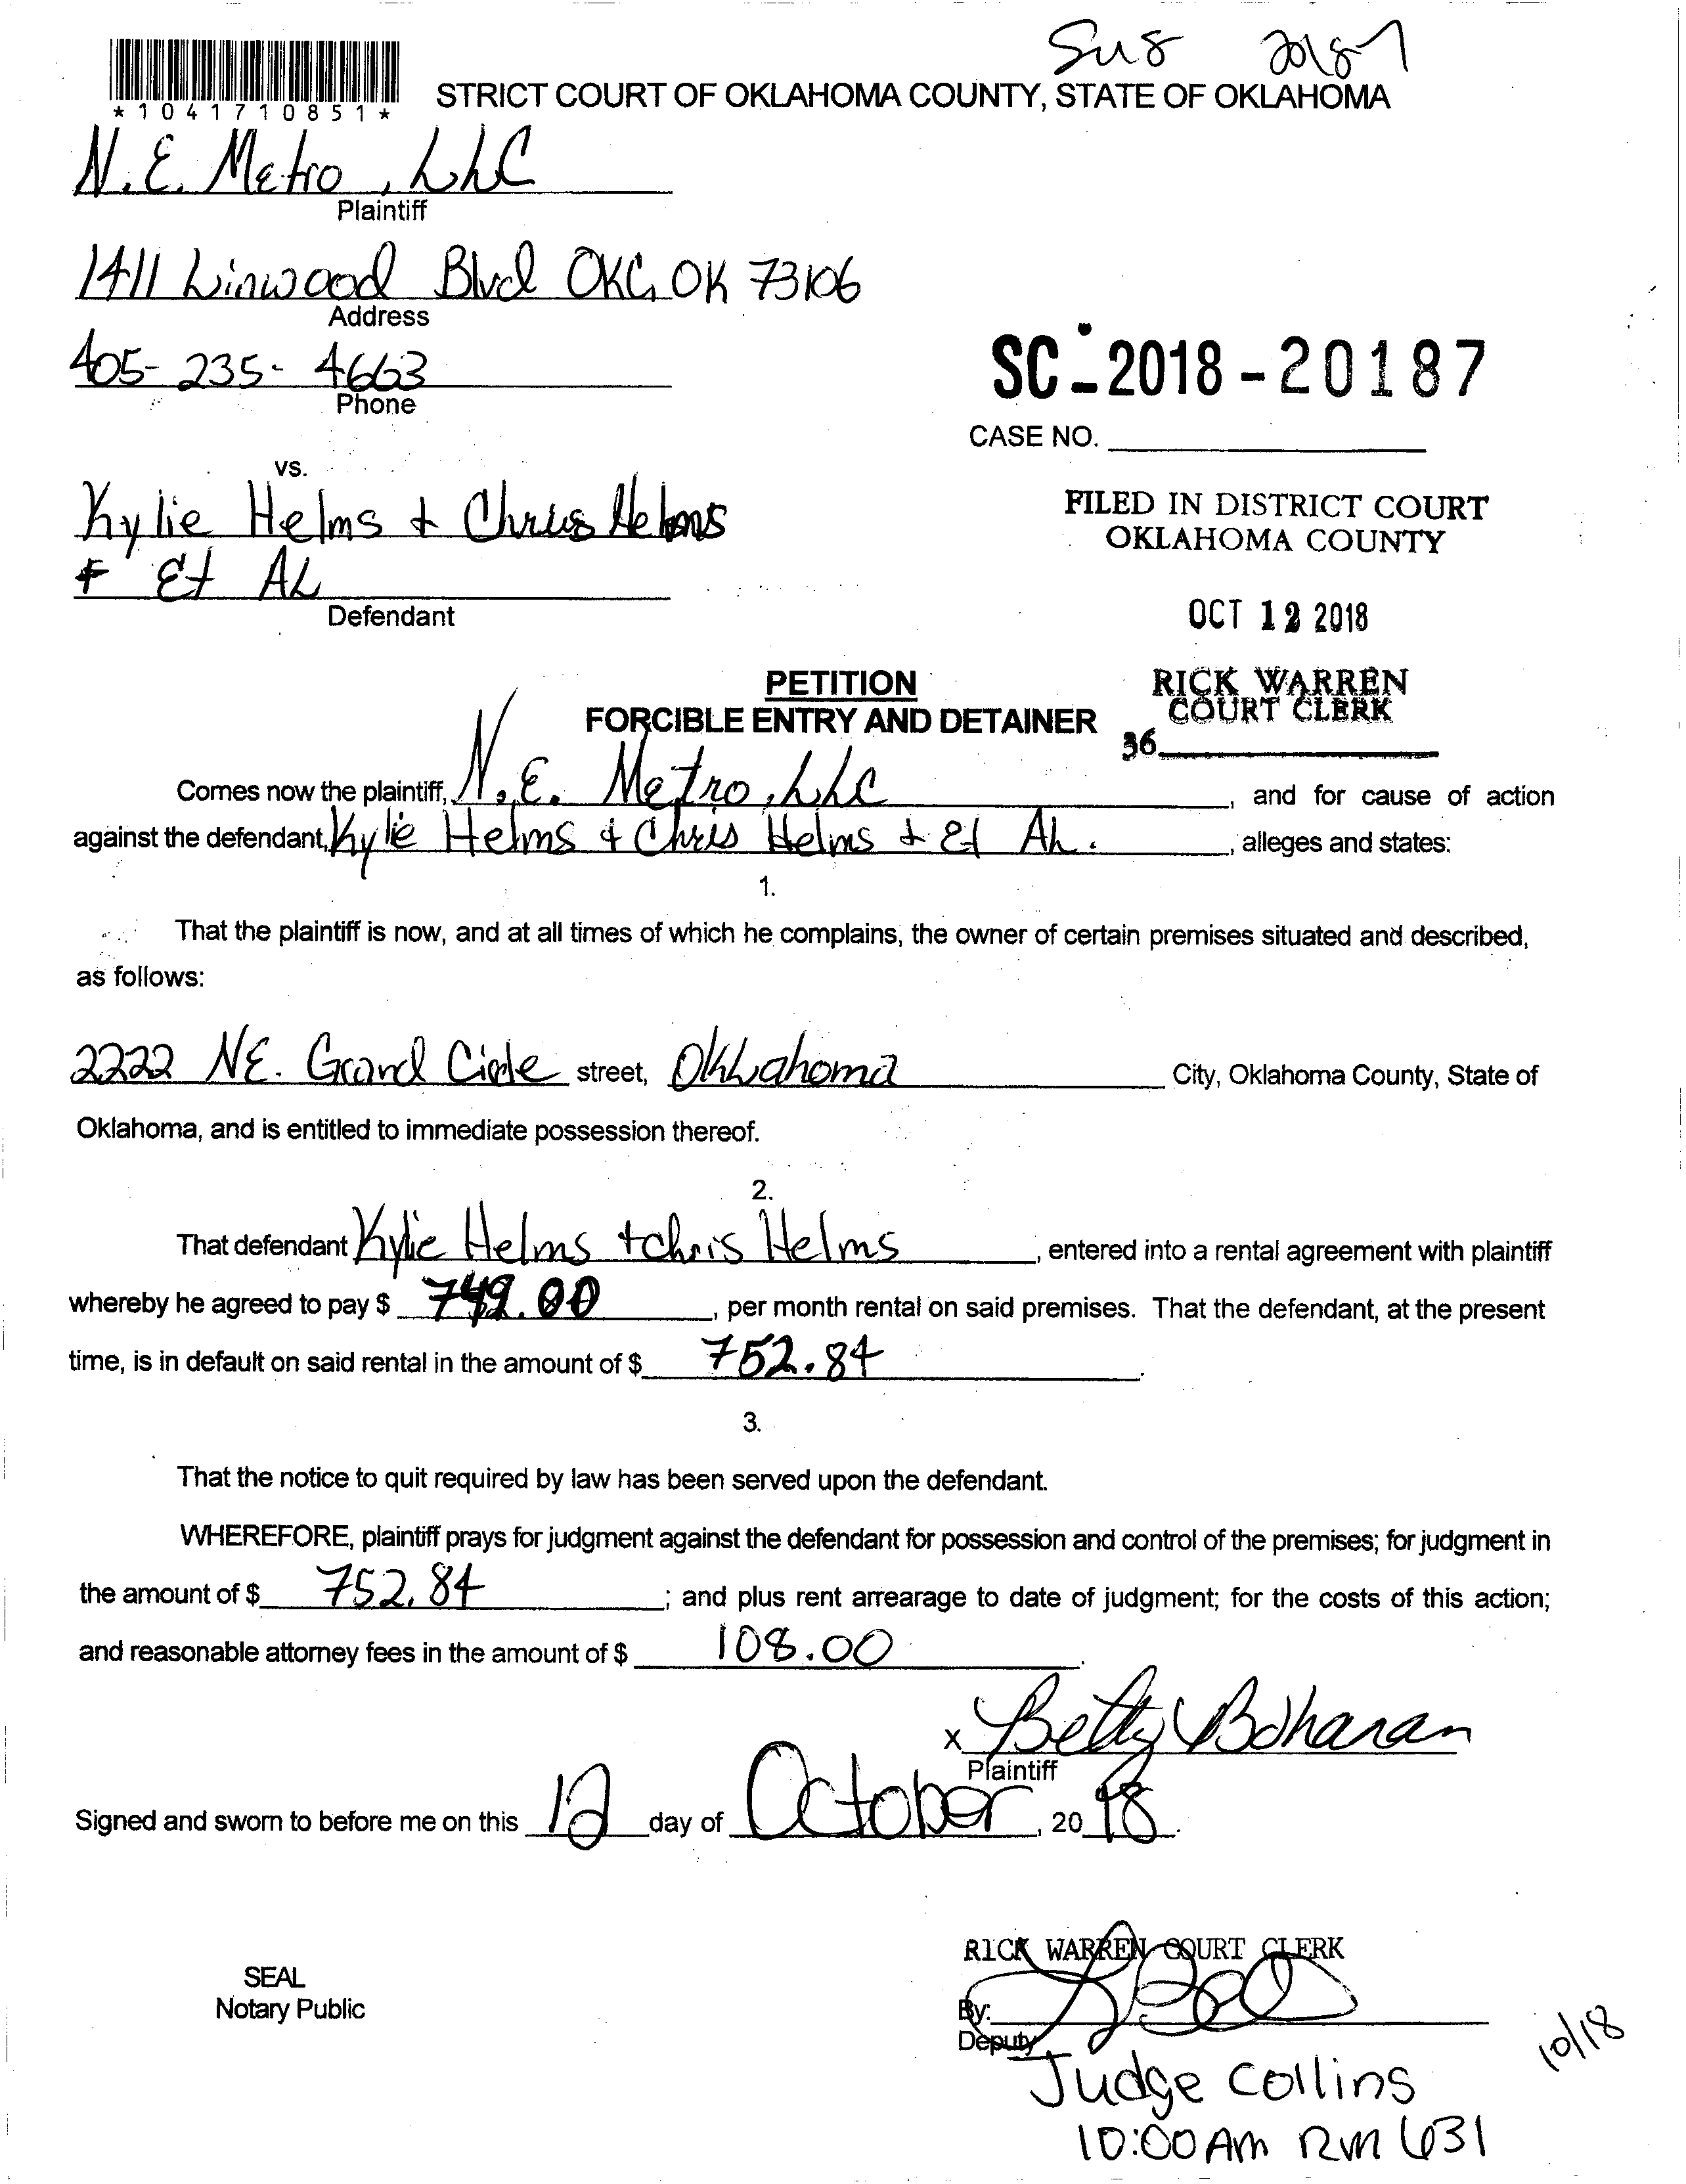 Sus 20187
*1041710851*
STRICT COURT OF OKLAHOMA COUNTY, STATE OF OKLAHOMA
N.E. Metro, LLC
Plaintiff
1411 Linwood Blvd OKC, OK 73106
Address
405-235-4663
Phone
SC-2018-20187
CASE NO.
vs.
Kylie Helms + Chris Helms
+ Et AL
Defendant
FILED IN DISTRICT COURT
OKLAHOMA COUNTY
OCT 12 2018
RICK WARREN
COURT CLERK
36
PETITION
FORCIBLE ENTRY AND DETAINER
Comes now the plaintiff, N.E. Metro, LLC, and for cause of action
against the defendant, Kylie Helms + Chris Helms + Et AL., alleges and states:
1.
That the plaintiff is now, and at all times of which he complains, the owner of certain premises situated and described,
as follows:
2222 NE. Grand Circle street, Oklahoma City, Oklahoma County, State of
Oklahoma, and is entitled to immediate possession thereof.
2.
That defendant Kylie Helms + Chris Helms, entered into a rental agreement with plaintiff
whereby he agreed to pay $ 749.00, per month rental on said premises. That the defendant, at the present
time, is in default on said rental in the amount of $ 752.84.
3.
That the notice to quit required by law has been served upon the defendant.
WHEREFORE, plaintiff prays for judgment against the defendant for possession and control of the premises; for judgment in
the amount of $ 752.84; and plus rent arrearage to date of judgment; for the costs of this action;
and reasonable attorney fees in the amount of $ 108.00.
x Betty Bohanan
Plaintiff
Signed and sworn to before me on this 12 day of October, 2018.
RICK WARREN COURT CLERK
SEAL
Notary Public
By:
Deputy
10/18
Judge Collins
10:00 AM RM 631